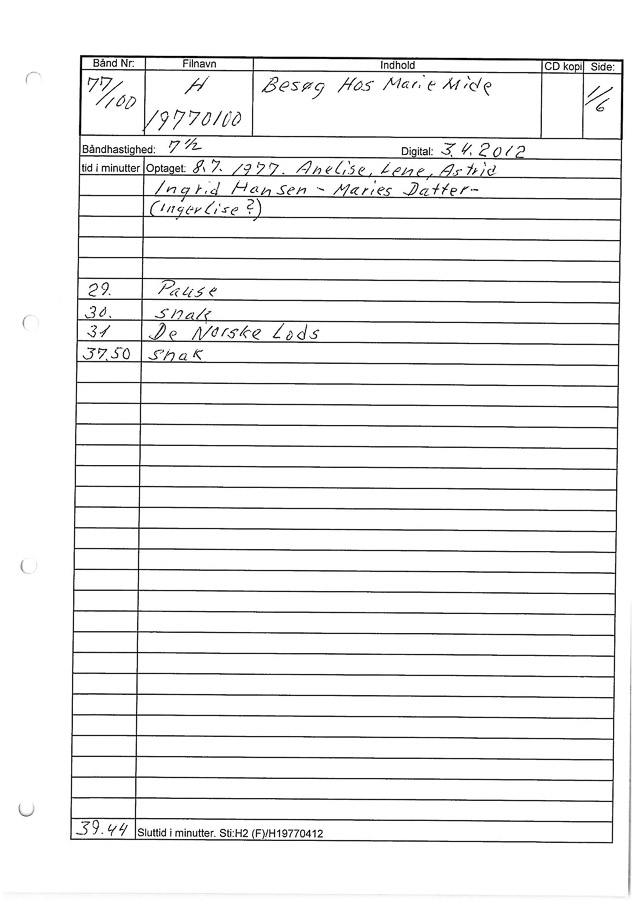 Bånd Nr: Filnavn Indhold CD kopi Side:
77/100 H Besøg Hos Marie Mide 1/6
19770100
Båndhastighed: 7 ½ Digital: 3.4.2012
tid i minutter Optaget: 8.7. 1977. Anelise, Lene, Astrid
Ingrid Hansen - Maries Datter-
(Ingerlise?)
29. Pause
30. snak
31 De Norske Lods
37.50 snak
39.44 Sluttid i minutter. Sti:H2 (F)/H19770412